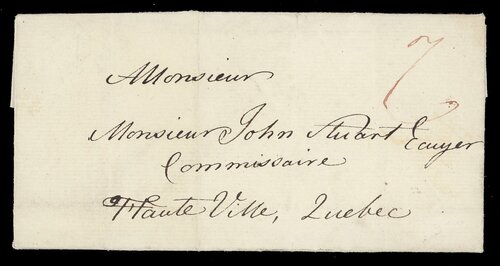 AMonsieur
7
Monsieur John Stuart Ecuyer
Commissaire
Haute Ville, Quebec